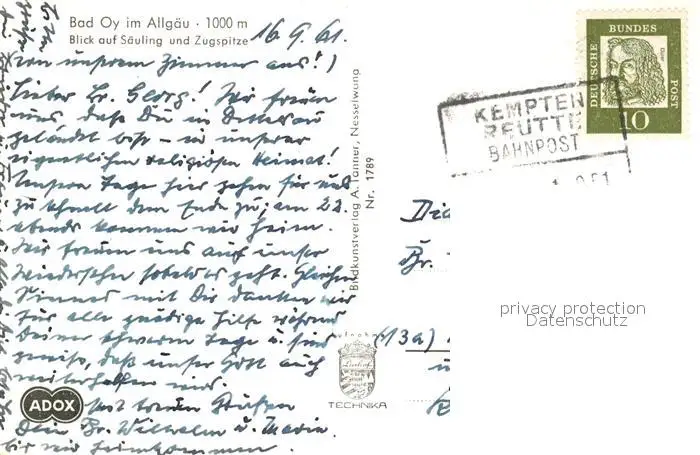 Bad Oy im Allgäu · 1000 m
Blick auf Säuling und Zugspitze
16.9.61.
(von unserem Zimmer aus!)
Lieber Br. Georg! Wir freuen
uns, daß Du in
gelandet bist – in unserer
eigentlichen religiösen Heimat!
Unsere Tage hier gehen für uns
zu schnell dem Ende zu; am 22.
abends kommen wir heim.
Wir freuen uns auf unser
Wiedersehn sobald es geht. Gleichen
Sinnes mit Dir danken wir
für alle gnädige Hilfe während
Deiner schweren Tage u. sind
gewiß, daß unser Gott auch
weiterhelfen wird.
Mit treuen Grüßen
Dein Br. Wilhelm u. Maria.
bis wir heimkommen.
ADOX
Bildkunstverlag A. Tanner, Nesselwang
Nr. 1789
TECHNIKA
DEUTSCHE
BUNDES
POST
Dürer
10
KEMPTEN
REUTTE
BAHNPOST
Br.
(13a)
privacy protection
Datenschutz